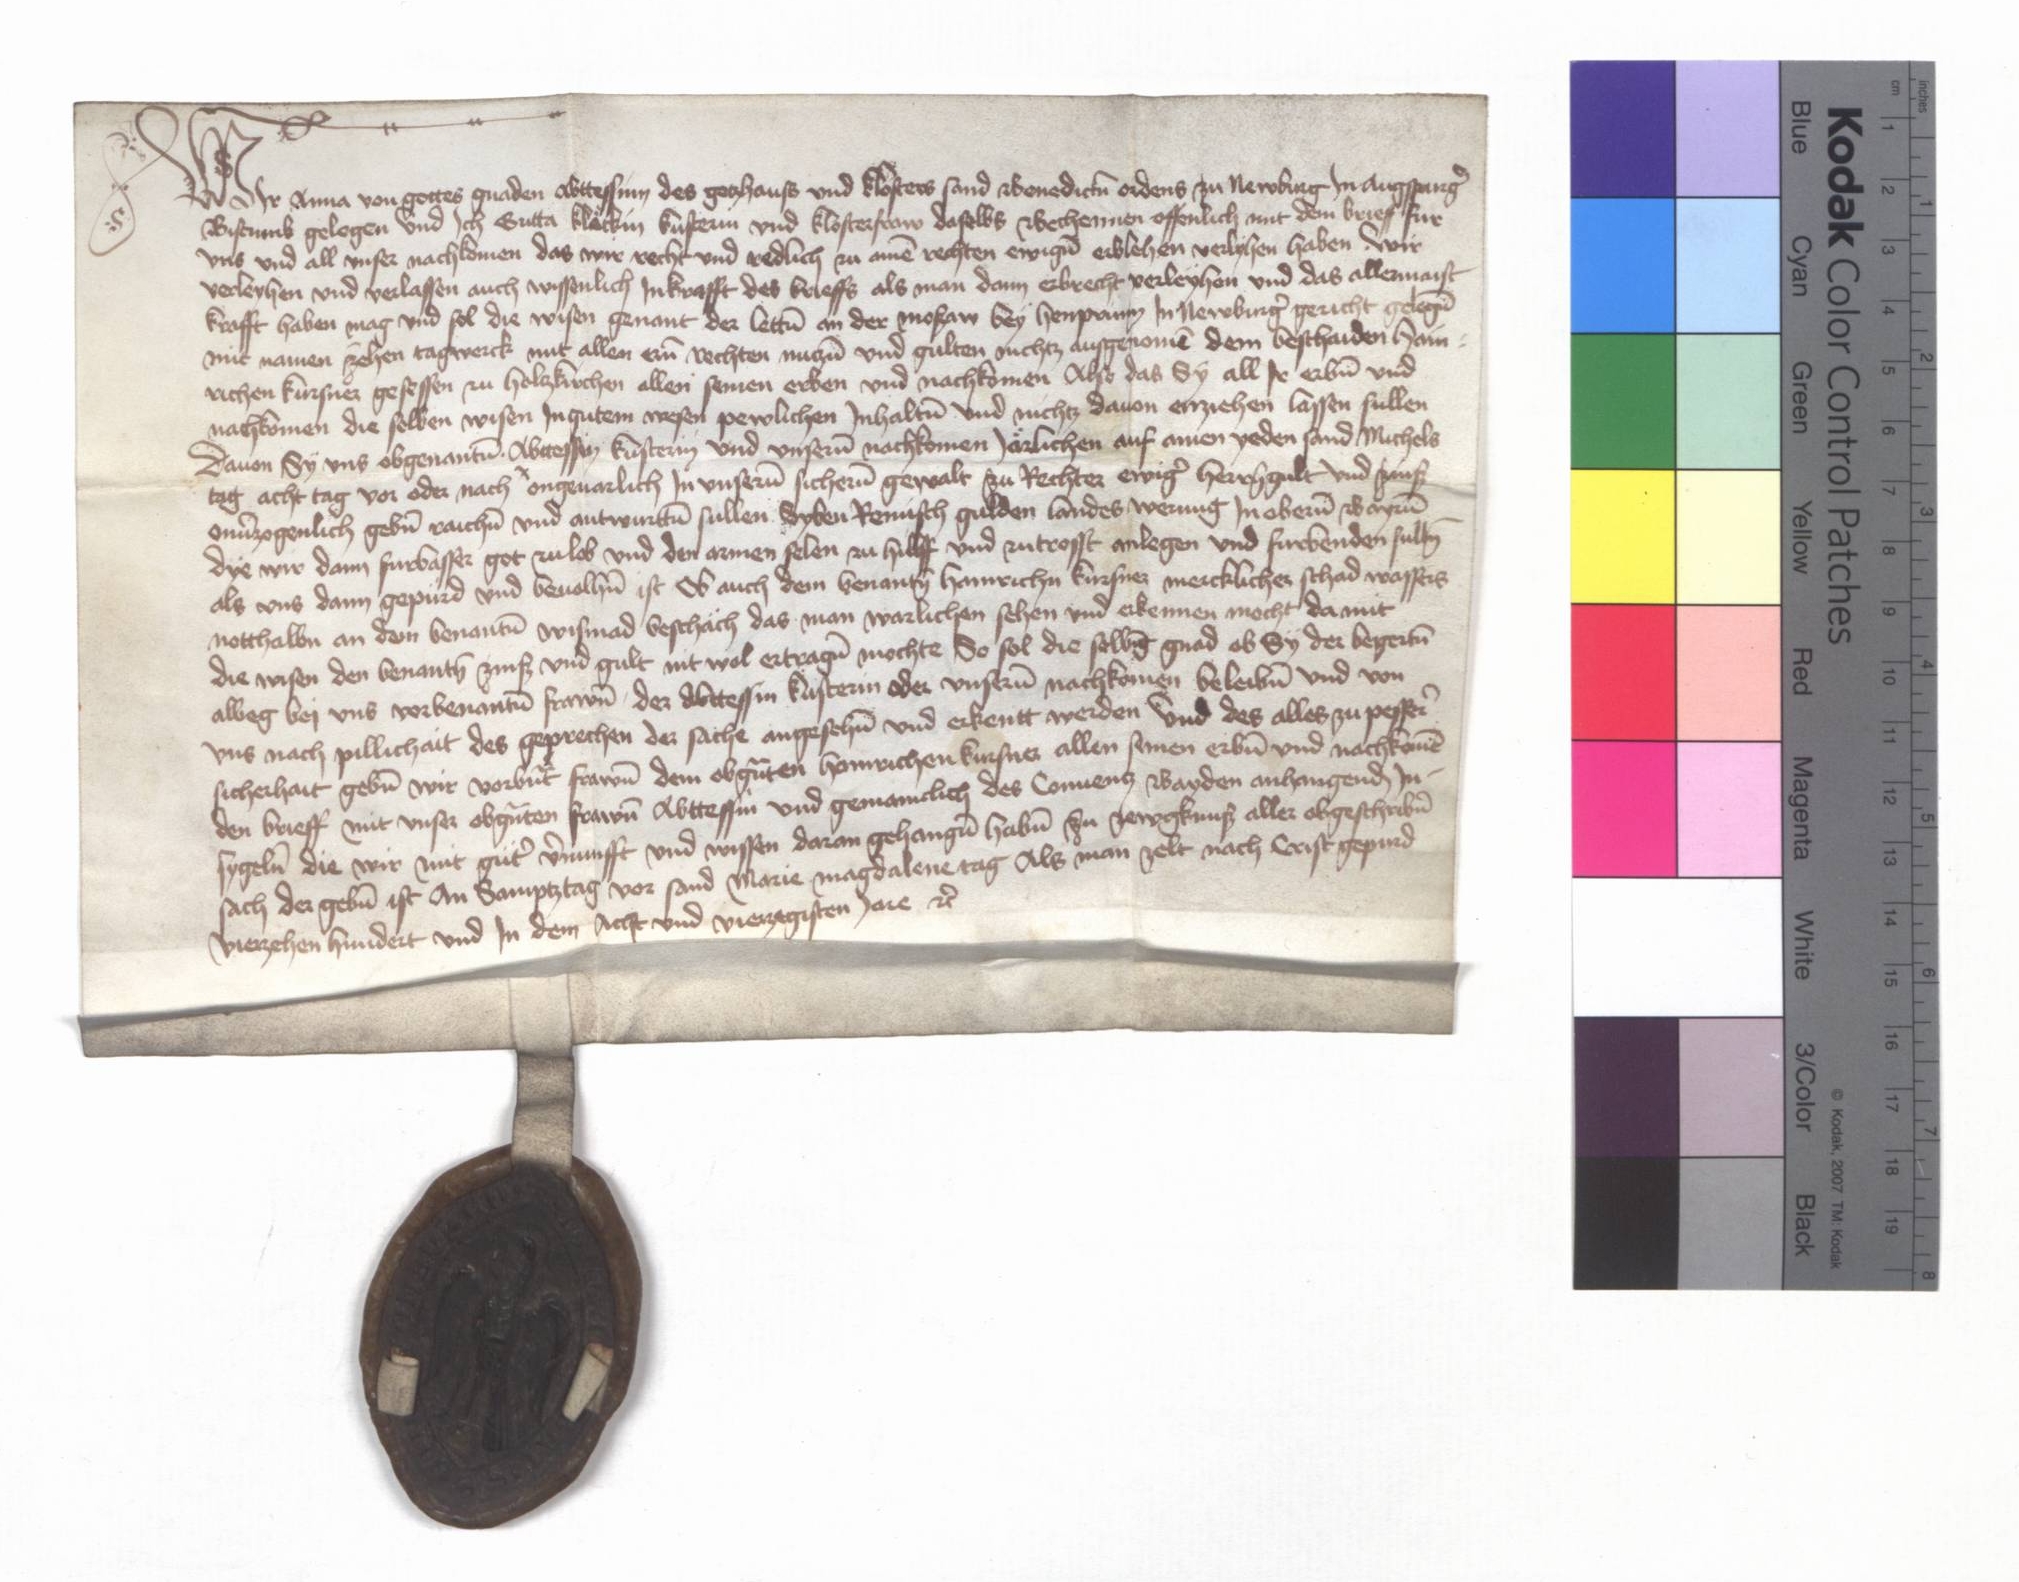 Wir Anna von gottes gnaden Abttessinn des gotzhauss und klosters sand Benedictn̄ ordens zu Newburg In Augspurgˀ
Bistumb gelegen Und Ich Gutta klöckin kusterin und klosterfraw daselbs Bechennen offenlich mit dem brieff fur
vns und all vnser nachkomen das wir recht und redlich zu ainē rechten ewign̄ erblehen verlyhen haben Wir
verleyhen und verlassen auch wissenlich In krafft des brieffs als man dann erbrecht verleyhen und das allermaist
krafft haben mag und sol die wisen genant der lettn̄ an der mosaw bey henprunn In Newburgˀ gericht gelegn̄
mit namen zehen tagwerck mit allen ern̄ rechten nuczn̄ und gulten nichtz ausgenomē dem beschaiden Hain-
richen kursner gesessen zu holtzkirchen allen seinen erben und nachkomen Also das Sy all Ir erbn̄ und
nachkomen die selben wisen In gutem wesen pewlichen Inhaltn̄ Und nichtz dauon enziehen lassen sullen
Dauon Sy uns obgenantn̄ Abttessin kusterin Und unsern̄ nachkomen Järlichen auf ainen yeden sand Michels
tag acht tag vor oder nach ongeuarlich In unsern̄ sichern̄ gewalt zu Rechter ewigˀ herrngult Und zinss
onuˀzogenlich gebn̄ raichn̄ und antwurttn̄ sullen Syben Reinisch gulden landes werung In obern̄ Bayrn̄
dye wir dann furbasser got zu lob und den armen selen zu hilff und zu trosst anlegen und furbenden sulln̄
als uns dann gepürd und beuolhn̄ ist Ob auch dem benantn̄ Hainrichn kursner mercklicher schad wassers
notthalbn an dem benantn̄ wismad beschäch das man warlichen sehen und erkennen mocht da mit
die wisen den benantn̄ zinss und gult nit wol ertragn̄ mochte So sol die selbig gnad ob Sy der begertn̄
allbeg bei uns vorbenantn̄ frawn̄ der Abttessin kusterin oder unsern̄ nachkomen beleibn̄ und von
uns nach pillichait des geprechen der sache angesehn̄ und erkentt werden Und des alles zu pesserˀ
sicherhait gebn̄ wir vorbn̄t frawn̄ dem obgn̄ten Hainrichen kursner allen seinen erbn̄ und nachkomē
den brieff mit unser obgn̄ten frawn̄ Abttessin und gemainclich des Conuentz Bayden anhangendn̄ In-
sygeln̄ die wir mit gutˀ uˀnunfft und wissen daran gehangn̄ habn̄ Zu zewgknuss aller obgeschribn̄
sach der gebn̄ ist An Samptztag vor sand Marie magdalene tag Als man zelt nach Crist gepurd
vierzehen hundert und In dem Acht und vierzegisten Jare ꝛc̄
Kodak Color Control Patches
Blue
Cyan
Green
Yellow
Red
Magenta
White
3/Color
Black
© Kodak, 2007 TM: Kodak
cm 1 2 3 4 5 6 7 8 9 10 11 12 13 14 15 16 17 18 19
inches 1 2 3 4 5 6 7 8